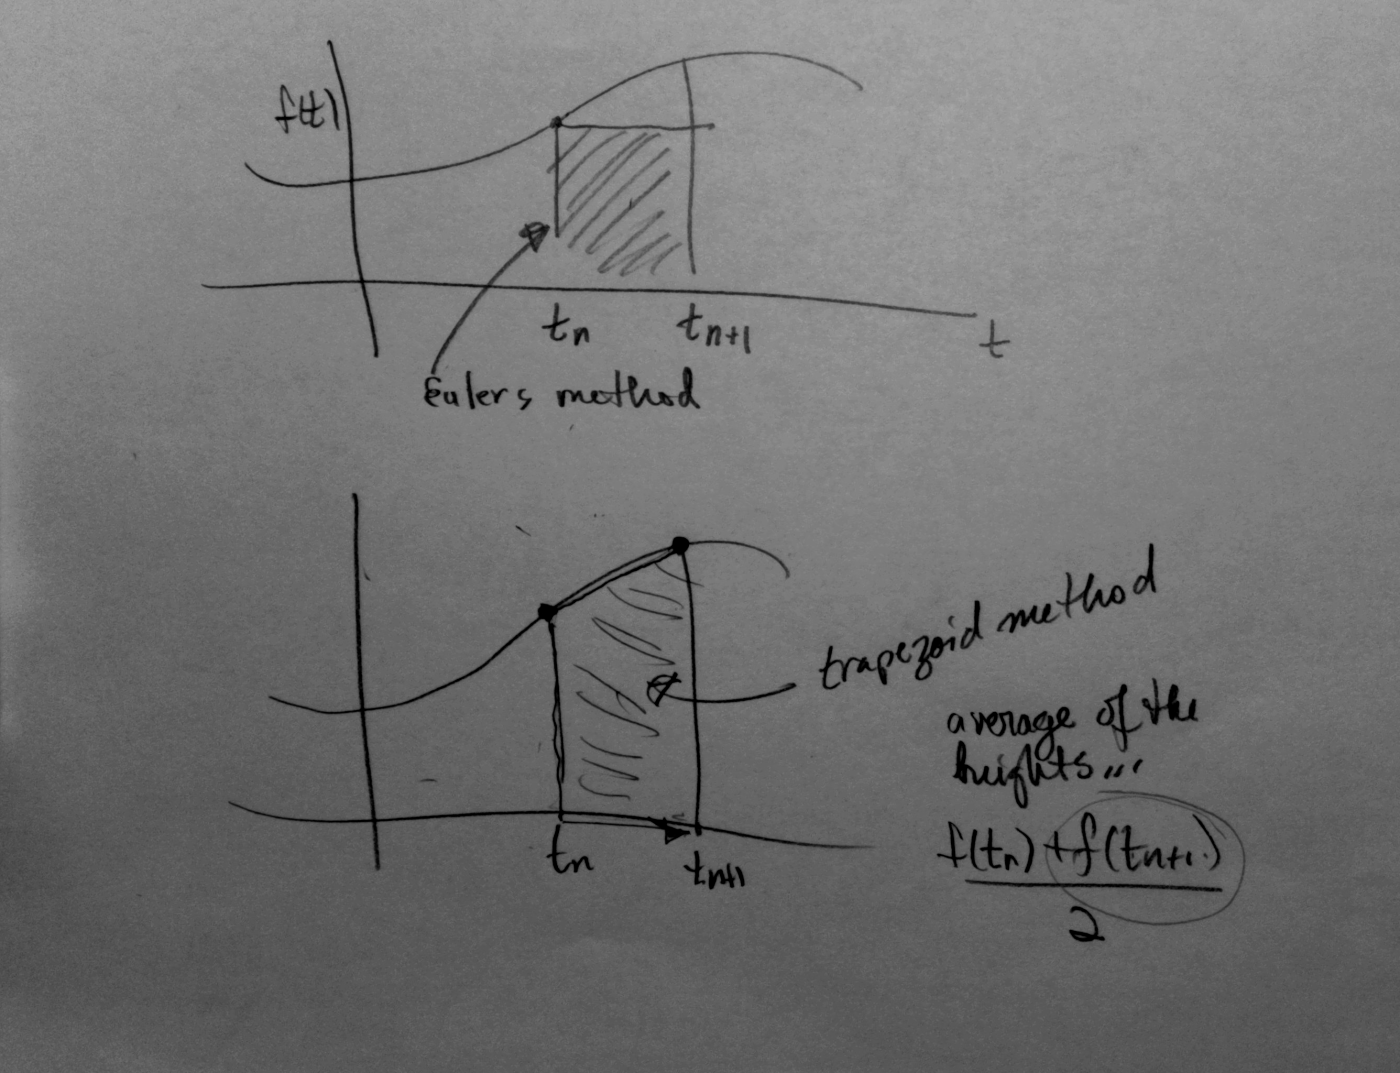 f(t)
tn
tn+1
t
Eulers method
trapezoid method
average of the
heights...
f(tn) + f(tn+1)
2
tn
tn+1